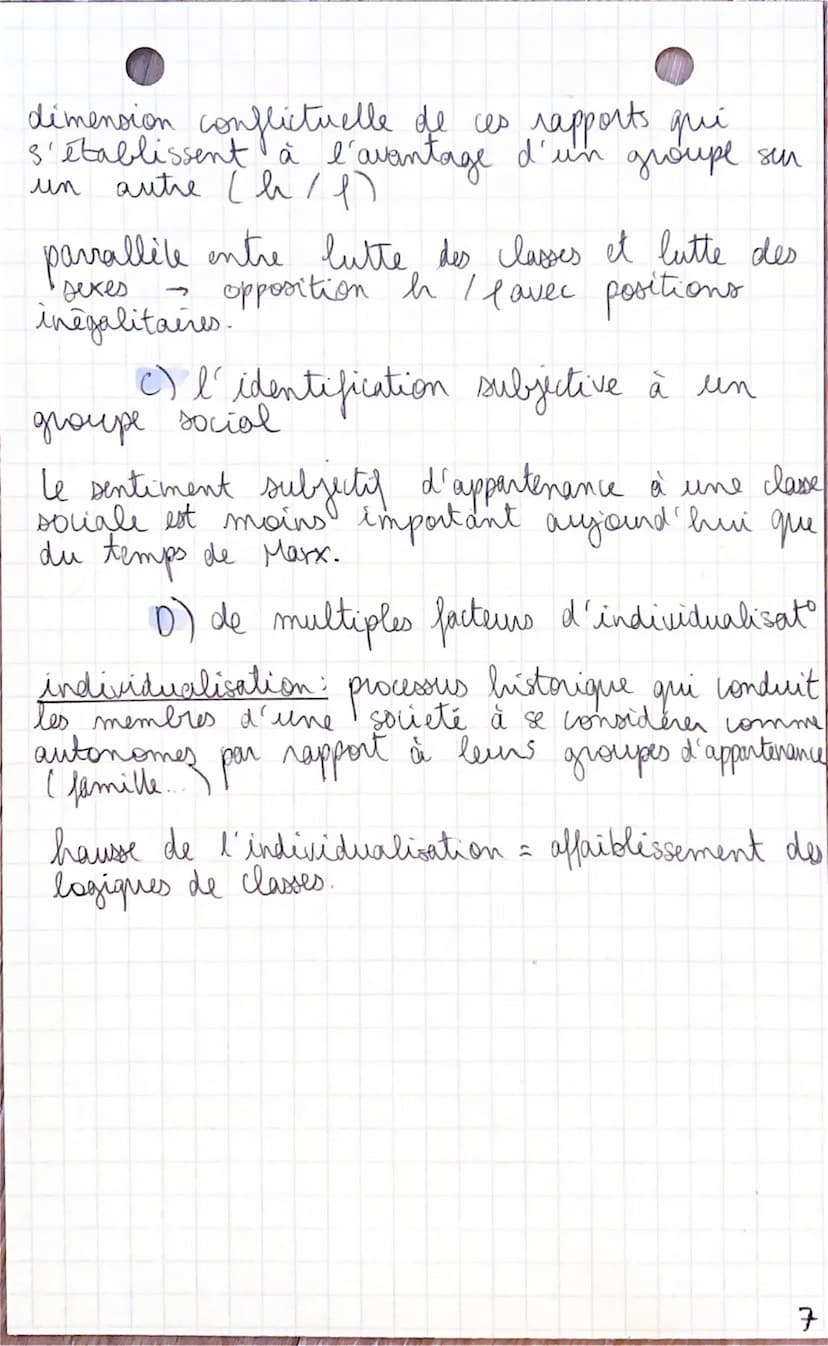 dimension conflictuelle de ces rapports qui
s'établissent à l'avantage d'un groupe sur
un autre (h / f)
parrallèle entre lutte des classes et lutte des
sexes → opposition h / f avec positions
inégalitaires.
C) l'identification subjective à un
groupe social
Le sentiment subjectif d'appartenance à une classe
sociale est moins important aujourd'hui que
du temps de Marx.
D) de multiples facteurs d'individualisat°
individualisation : processus historique qui conduit
les membres d'une société à se considérer comme
autonomes par rapport à leurs groupes d'appartenance
(famille...)
hausse de l'individualisation = affaiblissement des
logiques de classes.
7